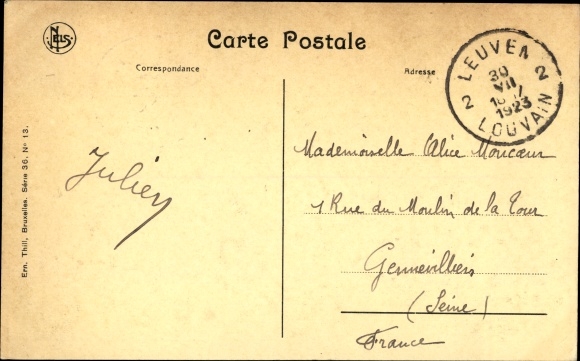 NELS
Carte Postale
Correspondance
Adresse
LEUVEN 2
30
VII
18
1923
2 LOUVAIN
Julien
Mademoiselle Alice Moncœur
1 Rue du Moulin de la Tour
Gennevilliers
(Seine)
France
Ern. Thill, Bruxelles. Série 36. N° 13.